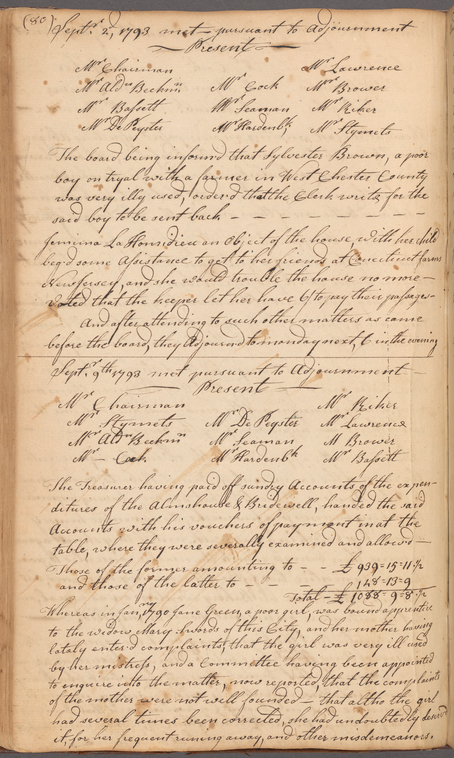 (80)
Sept.r 2, 1793 met pursuant to Adjournment
Present
Mr Chairman Mr Lawrence
Mr Ald.n Beekmn Mr Cock Mr Brower
Mr Bassett Mr Seaman Mr Riker
Mr De Peyster Mr Hardenbk Mr Stymets
The board being informd that Sylvester Brown, a poor
boy on tryal with a farmer in West Chester County
was very illy used, order'd that the Clerk write for the
said boy to be sent back
Jemima La Hondrieu an object of the house, with her child
beg'd some Assistance to get to her friends at Conecticut farms
New Jersey, and she would trouble the house no more—
Voted that the keeper let her have 6/ to pay their passages—
And after attending to such other matters as came
before the board, they Adjournd to monday next, 6 in the evening
Sept.r 9th 1793 met pursuant to Adjournment
Present
Mr Chairman Mr Riker
Mr Stymets Mr De Peyster Mr Lawrence
Mr Ald Beekmn Mr Seaman M Brower
Mr Cock Mr Hardenbk Mr Bassett
The Treasurer having paid off sundry Accounts of the expen-
ditures of the Almshouse & Bridewell, handed the said
Accounts with his vouchers of paymont in at the
table, where they were severally examined and allowd—
Those of the former amounting to — £ 939-15-11 1/2
and those of the latter to — 148-13-9
Total — £ 1088-9-8 1/2
Whereas in Jany 1790 Jane Green, a poor girl, was bound apprentice
to the widow Mary Swords of this City, and her mother having
lately enter'd complaints, that the girl was very ill used
by her mestress, and a Committee having been appointed
to enquire into the matter, now reported, that the complaints
of the mother were not well founded — that altho the girl
had several times been corrected, she had undoubtedly deserv'd
it, for her frequent runing away, and other misdemeanors.